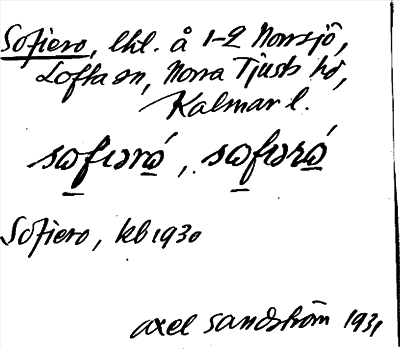 Sofiero, lhl. å 1-2 Norrsjö,
Lofta sn, Norra Tjusts hd,
Kalmar l.
Sofiero, kb 1930
axel sandström 1931